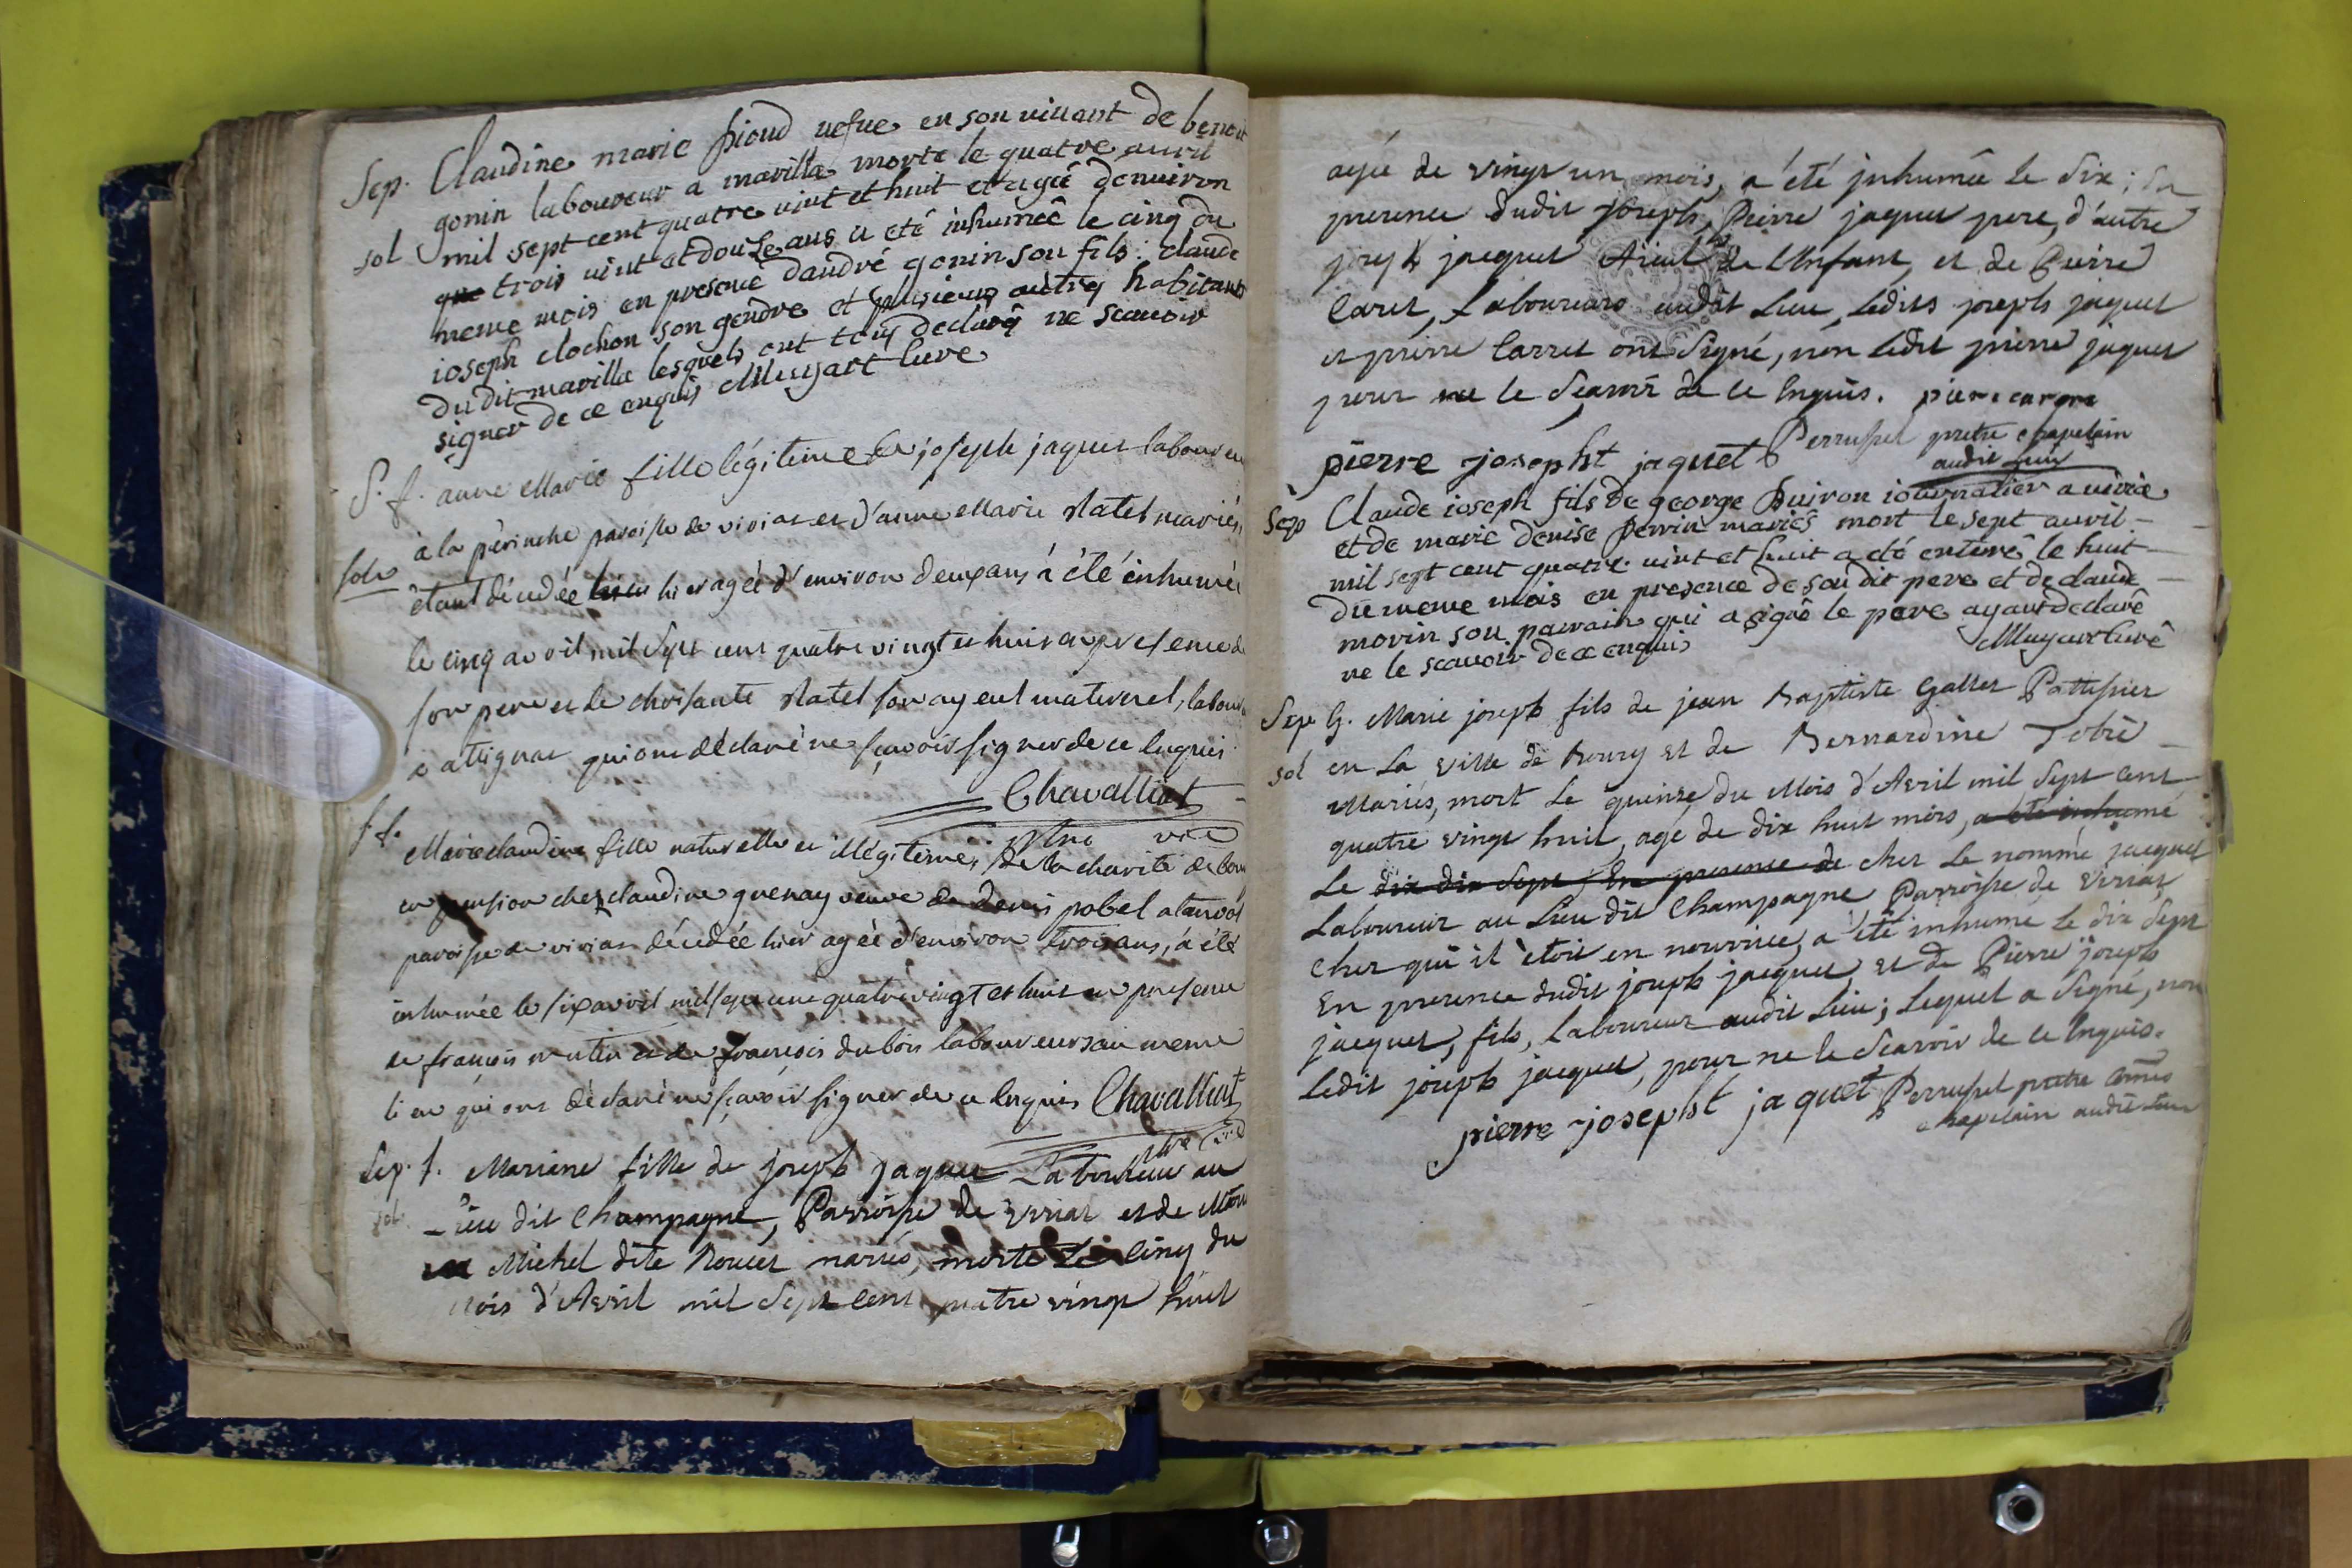 Sep. Claudine marie pioud vefve en son vivant de benoit
gonin laboureur a marilla morte le quatre avril
sol mil sept cent quatre vint et huit et agée denviron
que trois vint et douze ans a eté inhumeé le cinq du
meme mois en presence dandré gonin son fils. claude
ioseph clochon son gendre et plusieurs autres habitants
du dit marilla lesquels ont tous declarés ne scavoir
signer de ce enquis Muyart Cure
S. f. anne Marie fille légitime de joseph jaquet laboureur
à la perinche paroisse de viriat et d'anne Marie Natel mariés
solv étant décedée hier agée d'environ deux ans à été inhumée
le cinq avril mil sept cens quatre vingt et huit en presence de
son pere et de Natel son ayeul maternel, laboureur
à attignat qui ont déclaré ne sçavoir signer de ce enquis
Chavalliat
ptre vic
S f. Marie claudine fille naturelle et illégitime, de la charité de bourg
en pension chez claudine guenay veuve de denis pobel
paroisse de viriat décedée hier agée d'environ trois ans, a été
inhumée le six avril mil sept cens quatre vingt et huit en presence
de françois et de françois dubois laboureurs au meme
lieu qui ont déclaré ne sçavoir signer de ce enquis Chavalliat
ptre vic
Sep. f. Mariane fille de joseph jaquet Laboureur au
sol. Lieu dit Champagne, Parroisse de Viriat et de
Michel dite Rouset mariés, morte Le Cinq du
mois d'Avril mil Sept Cent quatre vingt huit
agée de vingt un mois, a été inhumée le Six; En
presence dudit joseph, Pierre jaquet pere, d'autre
joseph jacquet Aieul de L'Enfant, et de Pierre
Carret, Laboureurs audit Lieu, Ledits joseph jaquet
et pierre Carret ont Signé, non Ledit pierre jaquet
pour ne le Sçavoir de ce Enquis. piere carore
pierre josepht jaquet Perrussel pretre chapelain
audit Lieu
Sep Claude ioseph fils de george Buiron iournalier a viria
et de marie denise perrin mariés mort le sept avril
mil sept cent quatre vint et huit a eté enterré le huit
du meme mois en presence de son dit pere et de claude
morin son parrain qui a signé le pere ayant declaré
ne le scavoir de ce enquis Muyart Curé
Sep. G. Marie joseph fils de jean Baptiste Gallet Pattissier
sol en La ville de Bourg et de Bernardine Tobie
Mariés, mort Le quinze du Mois d'Avril mil Sept Cent
quatre vingt huit, agé de dix huit mois, a été inhumé
Le dix dix Sept En presence de chez Le nommé jacquet
Laboureur au Lieu dit Champagne Parroisse de Viriat,
chez qui il étoit en nourrice, a été inhumé Le dix Sept
En presence dudit joseph jacquet, et de Pierre joseph
jacquet, fils, Laboureur audit Lieu; Lequel a Signé, non
Ledit joseph jacquet, pour ne le Scavoir de ce Enquis.
pierre josepht jaquet Perrussel pretre
chapelain audit Lieu